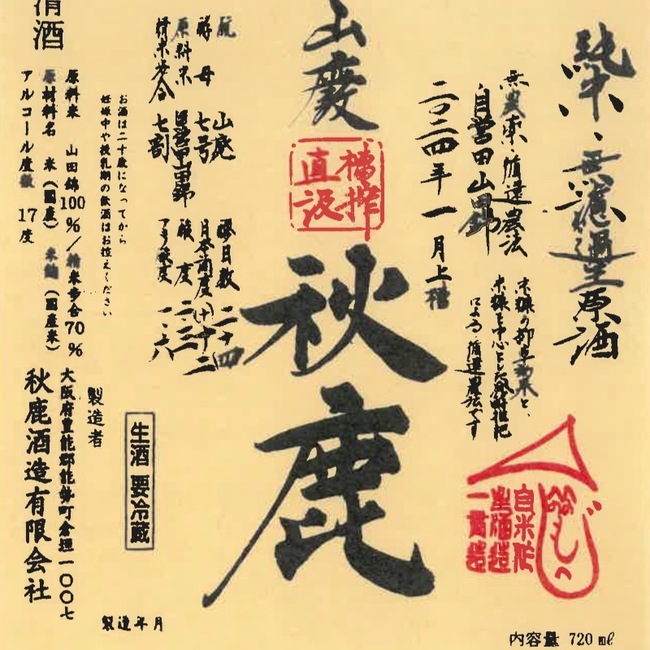 純米・無濾過生原酒
無農薬・循環農法
自営田山田錦
二〇二四年一月上槽
米糠を中心とした
による循環農法です
山廃
槽搾
直汲
秋鹿
自米作
一貫造
酛 山廃
酵母 七号
原料米 自営田山田錦
精米歩合 七割
醪日数 二十四
日本酒度 (+)十二
酸度 二・三
アミノ酸度 一・六
お酒は二十歳になってから
妊娠中や授乳期の飲酒はお控えください
清酒
原料米 山田錦100%/精米歩合70%
原材料名 米(国産) 米麹(国産米)
アルコール度数 17度
生酒 要冷蔵
製造者
大阪府豊能郡能勢町倉垣一〇〇七
秋鹿酒造有限会社
製造年月
内容量 720mℓ